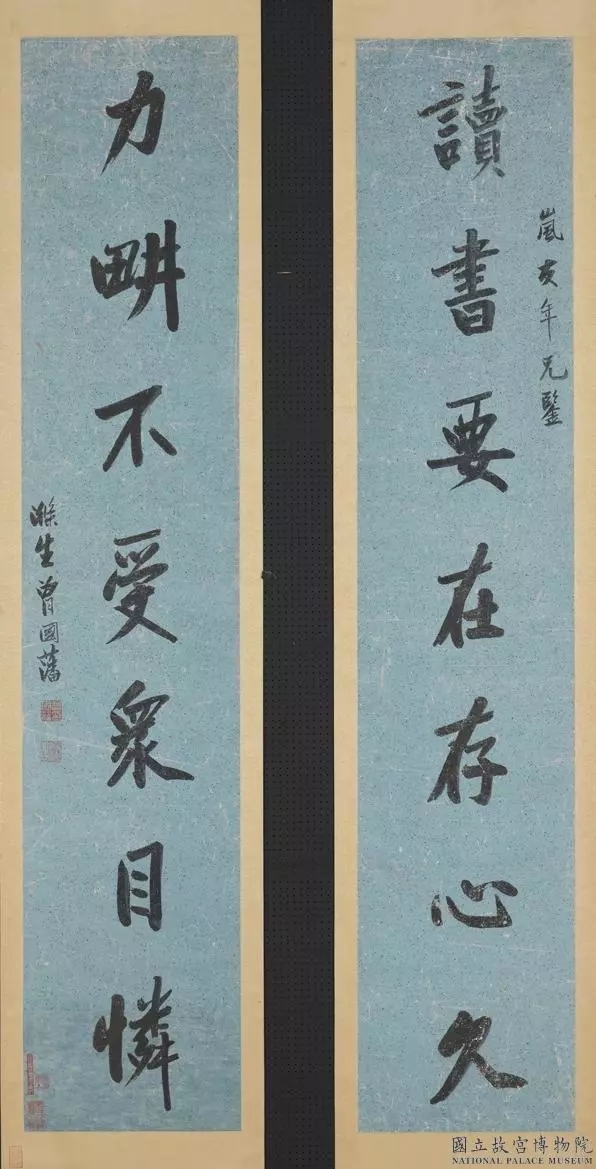 讀書要在存心久
嵐友年兄鑒
力畊不受眾目憐
滌生曾國藩
國立故宮博物院
NATIONAL PALACE MUSEUM